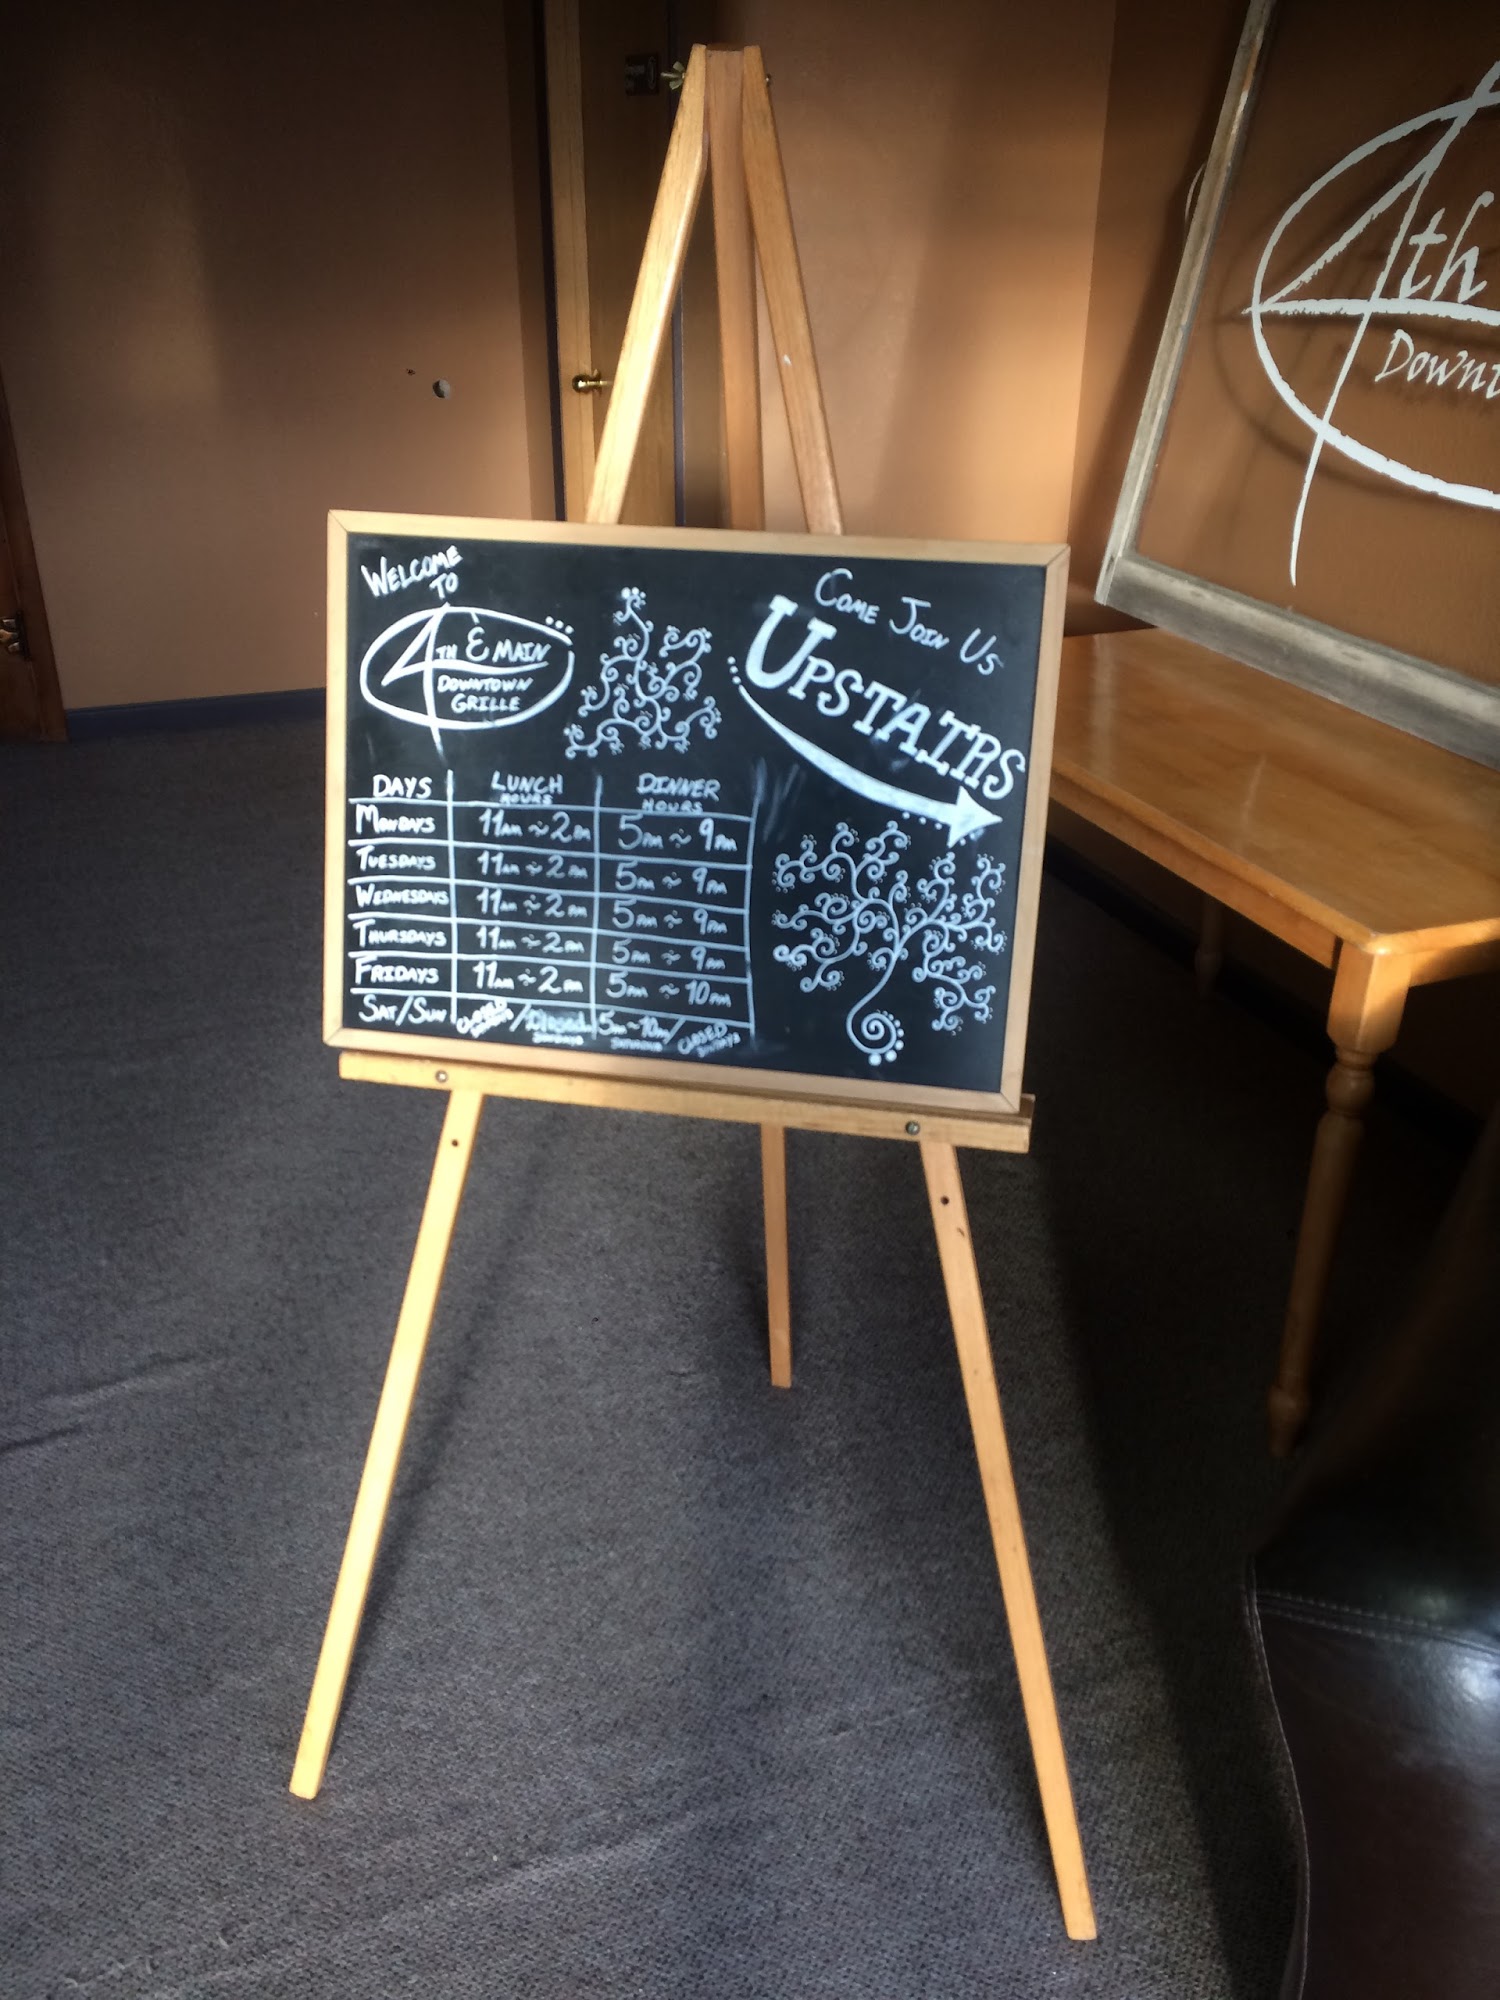 WELCOME
TO
4TH & MAIN
DOWNTOWN
GRILLE
COME JOIN US
UPSTAIRS
DAYS LUNCH HOURS DINNER HOURS
MONDAYS 11AM ~ 2PM 5PM ~ 9PM
TUESDAYS 11AM ~ 2PM 5PM ~ 9PM
WEDNESDAYS 11AM ~ 2PM 5PM ~ 9PM
THURSDAYS 11AM ~ 2PM 5PM ~ 9PM
FRIDAYS 11AM ~ 2PM 5PM ~ 10PM
SAT/SUN CLOSED / Closed SUNDAYS 5PM ~ 10PM SATURDAYS / CLOSED SUNDAYS
4th
Downt